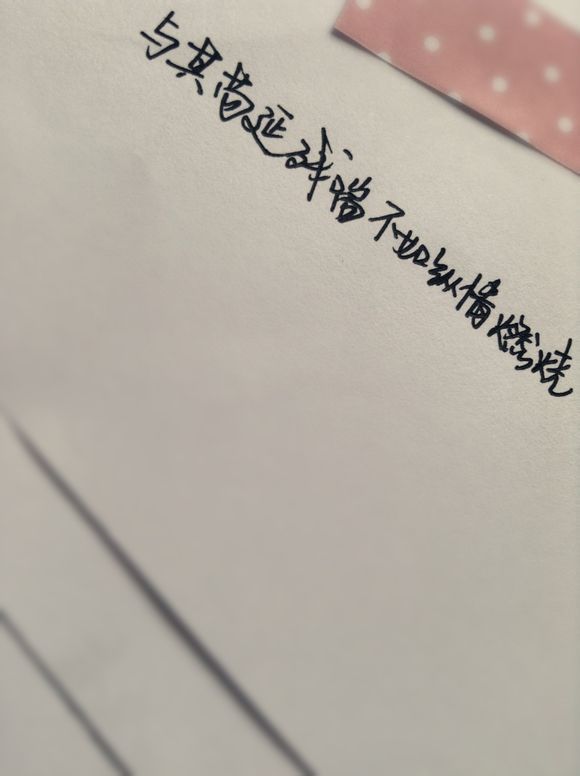 与其苟延残喘不如纵情燃烧